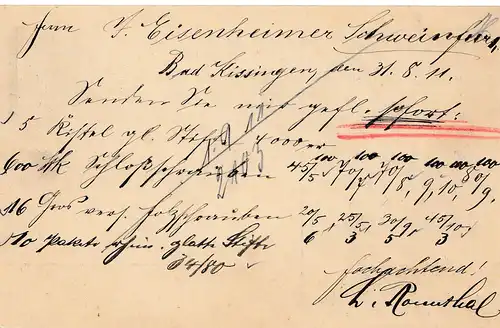 Herrn J. Eisenheimer Schweinfurt,
Bad Kissingen, den 31. 8. 11.
Senden Sie mir gefl. sofort:
5 Kistel gl. Stifte 4000er
600 Stk Schloßschrauben
100 100 100 100 100 100
16 Gros vers. Holzschrauben 20/5 25/5 30/9 45/10
6 3 5 3
10 Pakete rhein. glatte Stifte
34/80
1. 9. 11
2403
Hochachtend!
Rosenthal